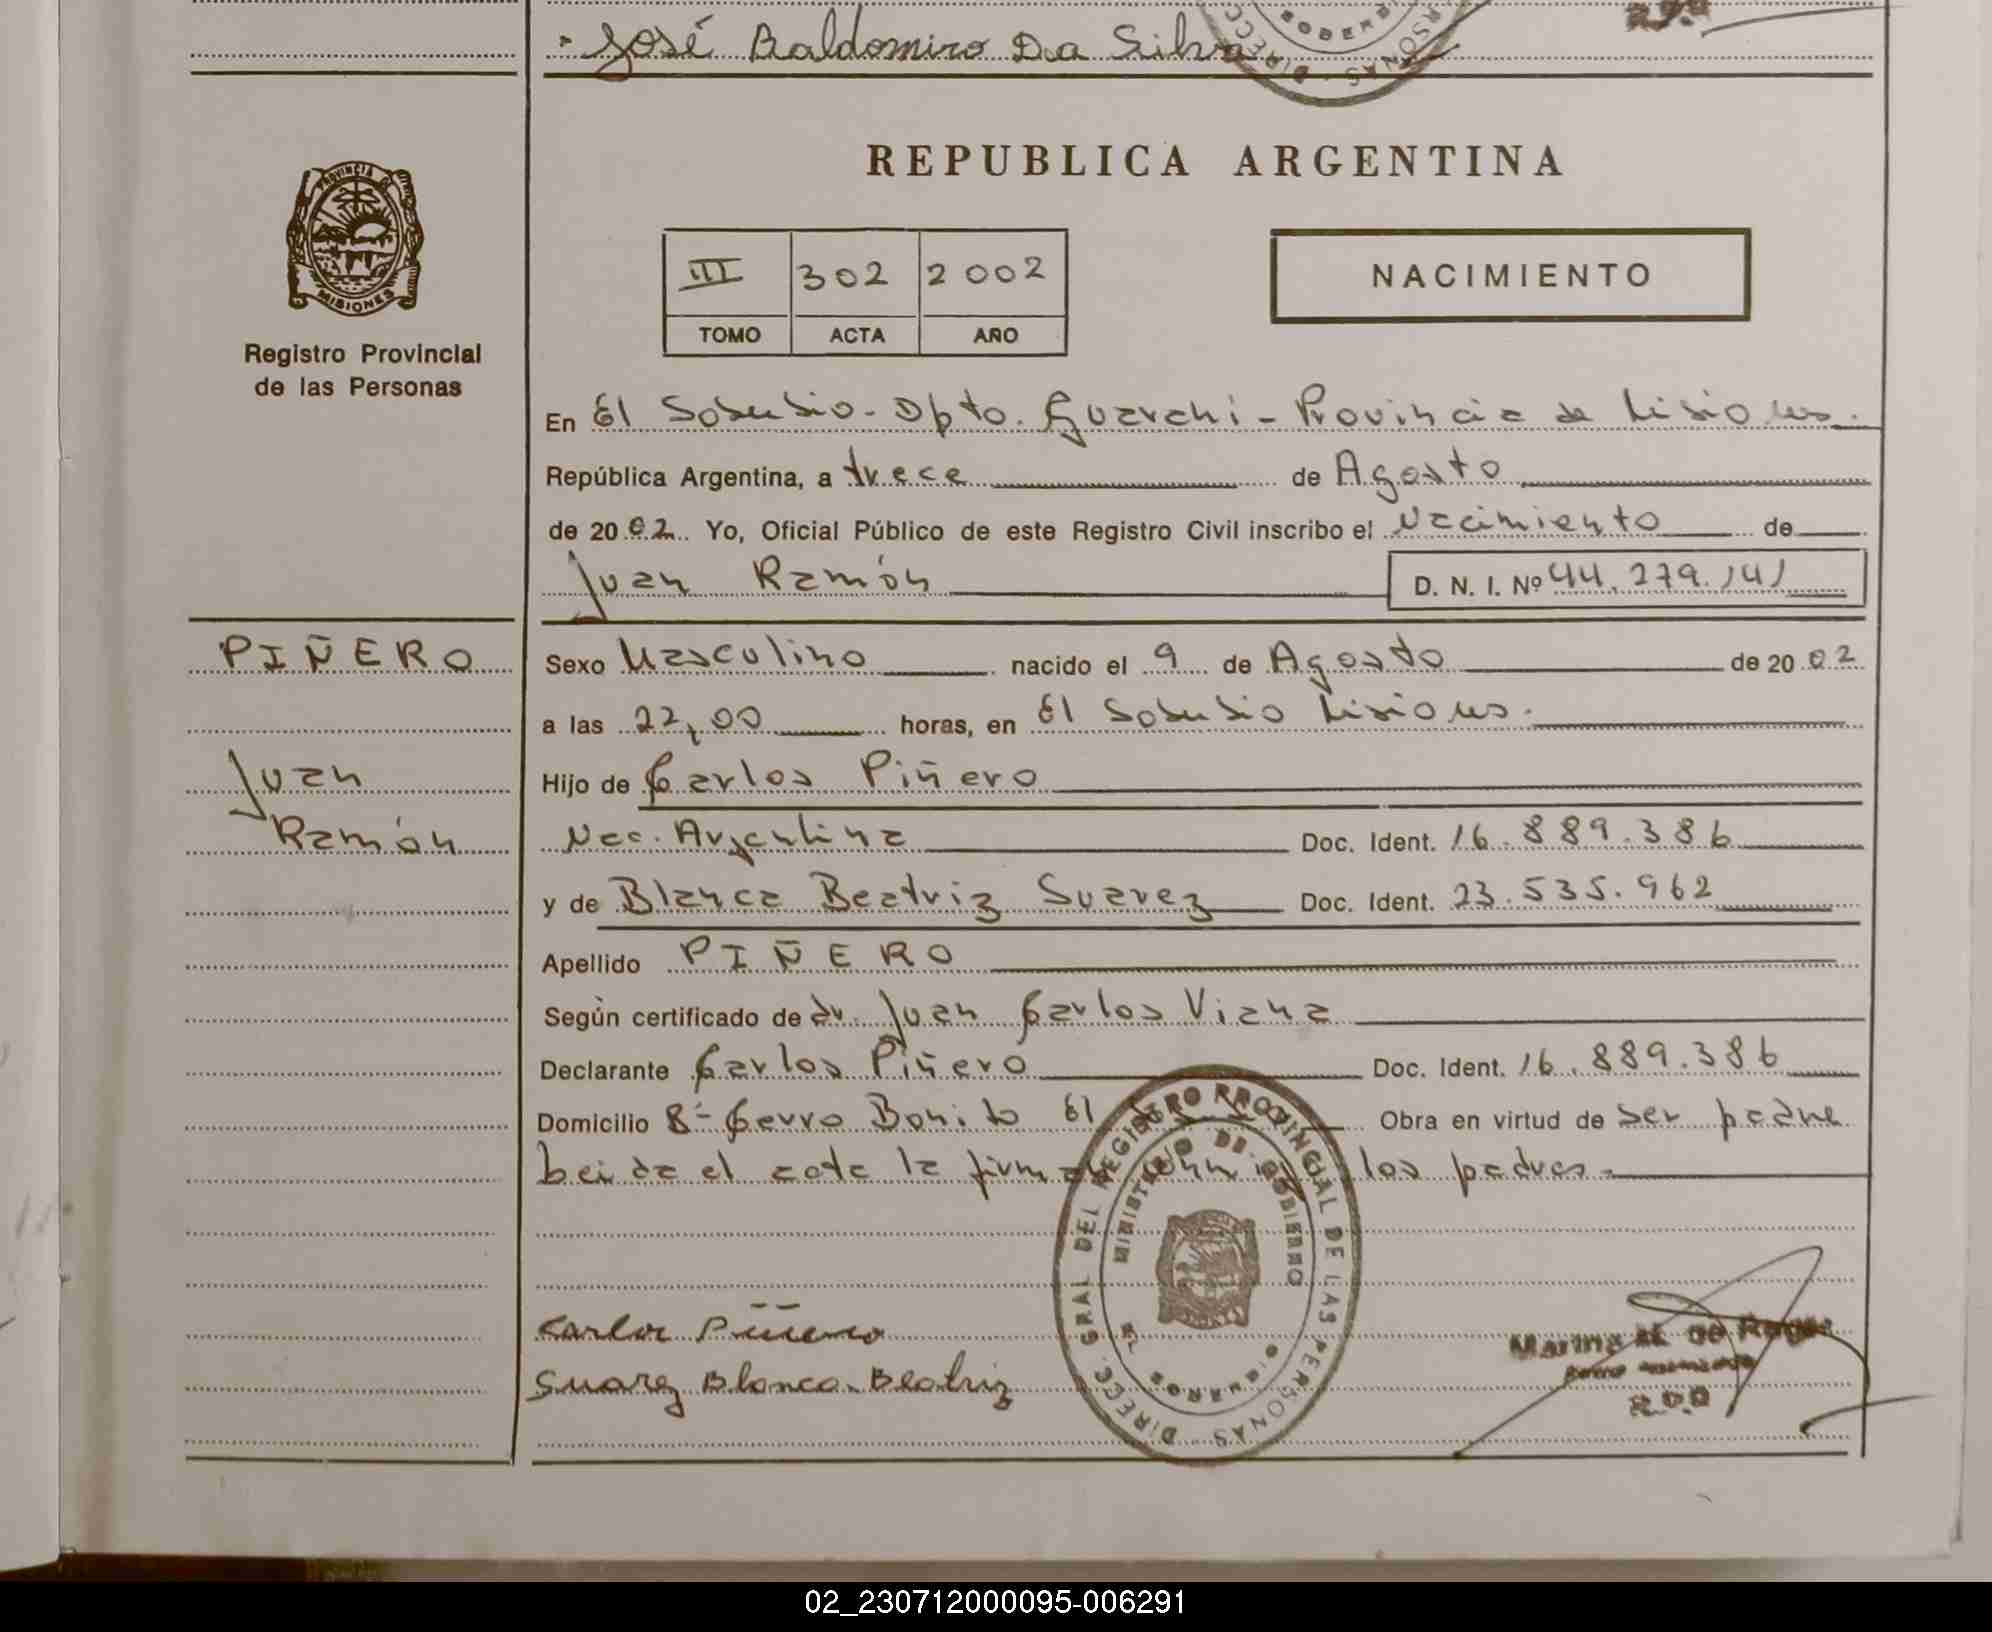 José Baldomiro Da Silva
PROVINCIA DE
MISIONES
Registro Provincial
de las Personas
REPUBLICA ARGENTINA
III 302 2002
TOMO ACTA AÑO
NACIMIENTO
En El Soberbio - Dpto. Guarani - Provincia de Misiones.
República Argentina, a trece de Agosto
de 2002. Yo, Oficial Público de este Registro Civil inscribo el Nacimiento de
Juan Ramón D. N. I. Nº 44.279.141
PIÑERO Sexo Masculino nacido el 9 de Agosto de 2002
a las 22,00 horas, en El Soberbio Misiones.
Juan Hijo de Carlos Piñero
Ramón Nac. Argentina Doc. Ident. 16.889.386
y de Blanca Beatriz Suarez Doc. Ident. 23.535.962
Apellido PIÑERO
Según certificado de dr. Juan Carlos Viana
Declarante Carlos Piñero Doc. Ident. 16.889.386
Domicilio Bº Cerro Bonito El Obra en virtud de ser padre
leida el acta la firman los padres.
DIRECC. GRAL DEL REGISTRO PROVINCIAL DE LAS PERSONAS
MINISTERIO DE GOBIERNO
MISIONES
Carlos Piñero
Suarez Blanca Beatriz
Marina
02_230712000095-006291